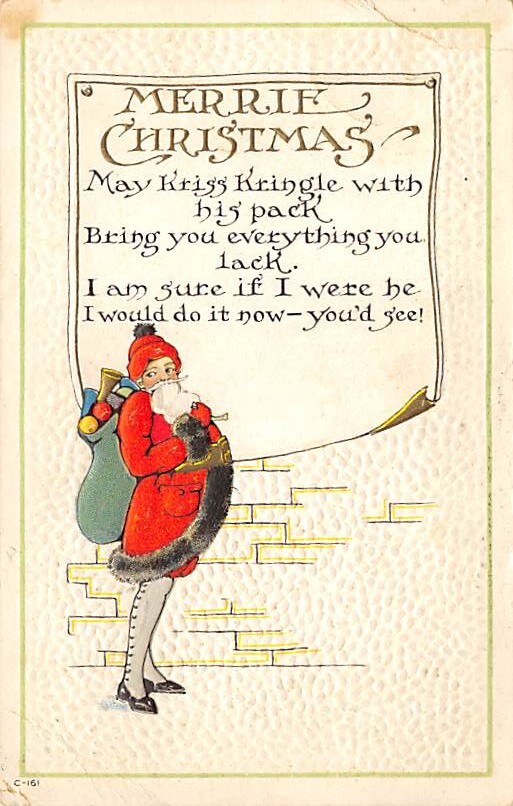 MERRIE
CHRISTMAS
May Kriss Kringle with
his pack
Bring you everything you
lack.
I am sure if I were he
I would do it now—you'd see!
C-161